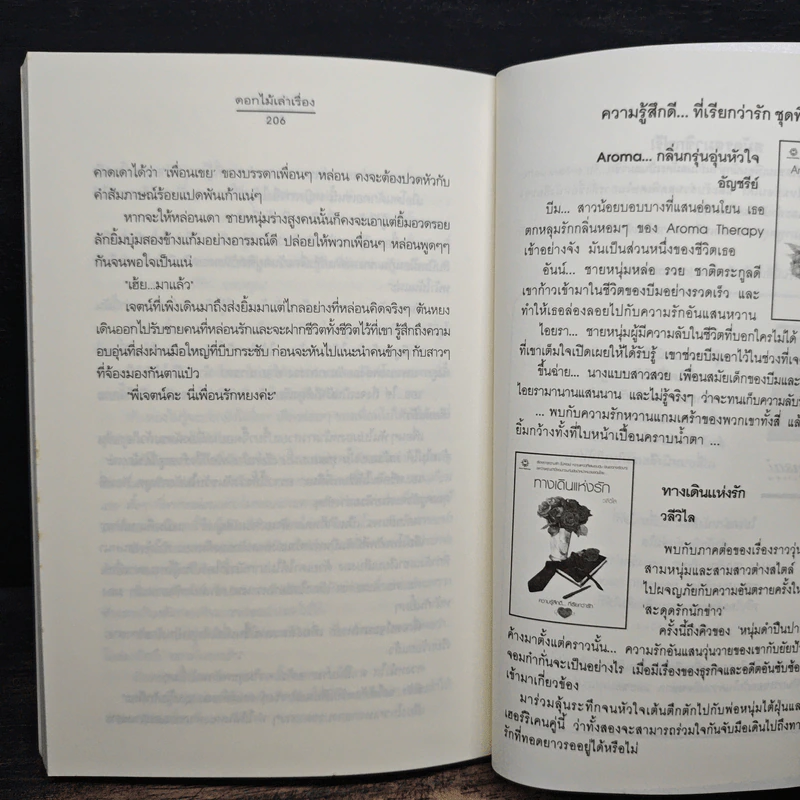 ดอกไม้เล่าเรื่อง
206
คาดเดาได้ว่า 'เพื่อนเขย' ของบรรดาเพื่อนๆ หล่อน คงจะต้องปวดหัวกับ
คำสัมภาษณ์ร้อยแปดพันเก้าแน่ๆ
หากจะให้หล่อนเดา ชายหนุ่มร่างสูงคนนั้นก็คงจะเอาแต่ยิ้มอวดรอย
ลักยิ้มบุ๋มสองข้างแก้มอย่างอารมณ์ดี ปล่อยให้พวกเพื่อนๆ หล่อนพูดๆๆ
กันจนพอใจเป็นแน่
"เฮ้ย...มาแล้ว"
เจตน์ที่เพิ่งเดินมาถึงส่งยิ้มมาแต่ไกลอย่างที่หล่อนคิดจริงๆ ต้นหยง
เดินออกไปรับชายคนที่หล่อนรักและจะฝากชีวิตทั้งชีวิตไว้ที่เขา รู้สึกถึงความ
อบอุ่นที่ส่งผ่านมือใหญ่ที่บีบกระชับ ก่อนจะหันไปแนะนำคนข้างๆ กับสาวๆ
ที่จ้องมองกันตาแป๋ว
"พี่เจตน์คะ นี่เพื่อนรักหยงค่ะ"
ความรู้สึกดี... ที่เรียกว่ารัก ชุด
Aroma... กลิ่นกรุ่นอุ่นหัวใจ
อัญชรีย์
บีม... สาวน้อยบอบบางที่แสนอ่อนโยน เธอ
ตกหลุมรักกลิ่นหอมๆ ของ Aroma Therapy
เข้าอย่างจัง มันเป็นส่วนหนึ่งของชีวิตเธอ
อันน์... ชายหนุ่มหล่อ รวย ชาติตระกูลดี
เขาก้าวเข้ามาในชีวิตของบีมอย่างรวดเร็ว และ
ทำให้เธอล่องลอยไปกับความรักอันแสนหวาน
ไอยรา... ชายหนุ่มผู้มีความลับในชีวิตที่บอกใครไม่ได้
ที่เขาเต็มใจเปิดเผยให้ได้รับรู้ เขาช่วยบีมเอาไว้ในช่วงที่
ขึ้นฉ่าย... นางแบบสาวสวย เพื่อนสมัยเด็กของบีมและ
ไอยรามานานแสนนาน และไม่รู้จริงๆ ว่าจะทนเก็บความลับ
... พบกับความรักหวานแกมเศร้าของพวกเขาทั้งสี่
ยิ้มกว้างทั้งที่ใบหน้าเปื้อนคราบน้ำตา ...
ทางเดินแห่งรัก
วลีวิไล
ความรู้สึกดี... ที่เรียกว่ารัก
ทางเดินแห่งรัก
วลีวิไล
พบกับภาคต่อของเรื่องราว
สามหนุ่มและสามสาวต่างสไตล์
ไปผจญภัยกับความอันตรายครั้ง
'สะดุดรักนักข่าว'
ครั้งนี้ถึงคิวของ 'หนุ่มดำปึน
ค้างมาตั้งแต่คราวนั้น... ความรักอันแสนวุ่นวายของเขากับยัย
จอมกำกั่นจะเป็นอย่างไร เมื่อมีเรื่องของธุรกิจและอดีตอันซับซ้อน
เข้ามาเกี่ยวข้อง
มาร่วมลุ้นระทึกจนหัวใจเต้นตึกตักไปกับพ่อหนุ่มใต้ฝุ่น
เฮอร์ริเคนคู่นี้ ว่าทั้งสองจะสามารถร่วมใจกันจับมือเดินไปถึง
รักที่ทอดยาวรออยู่ได้หรือไม่